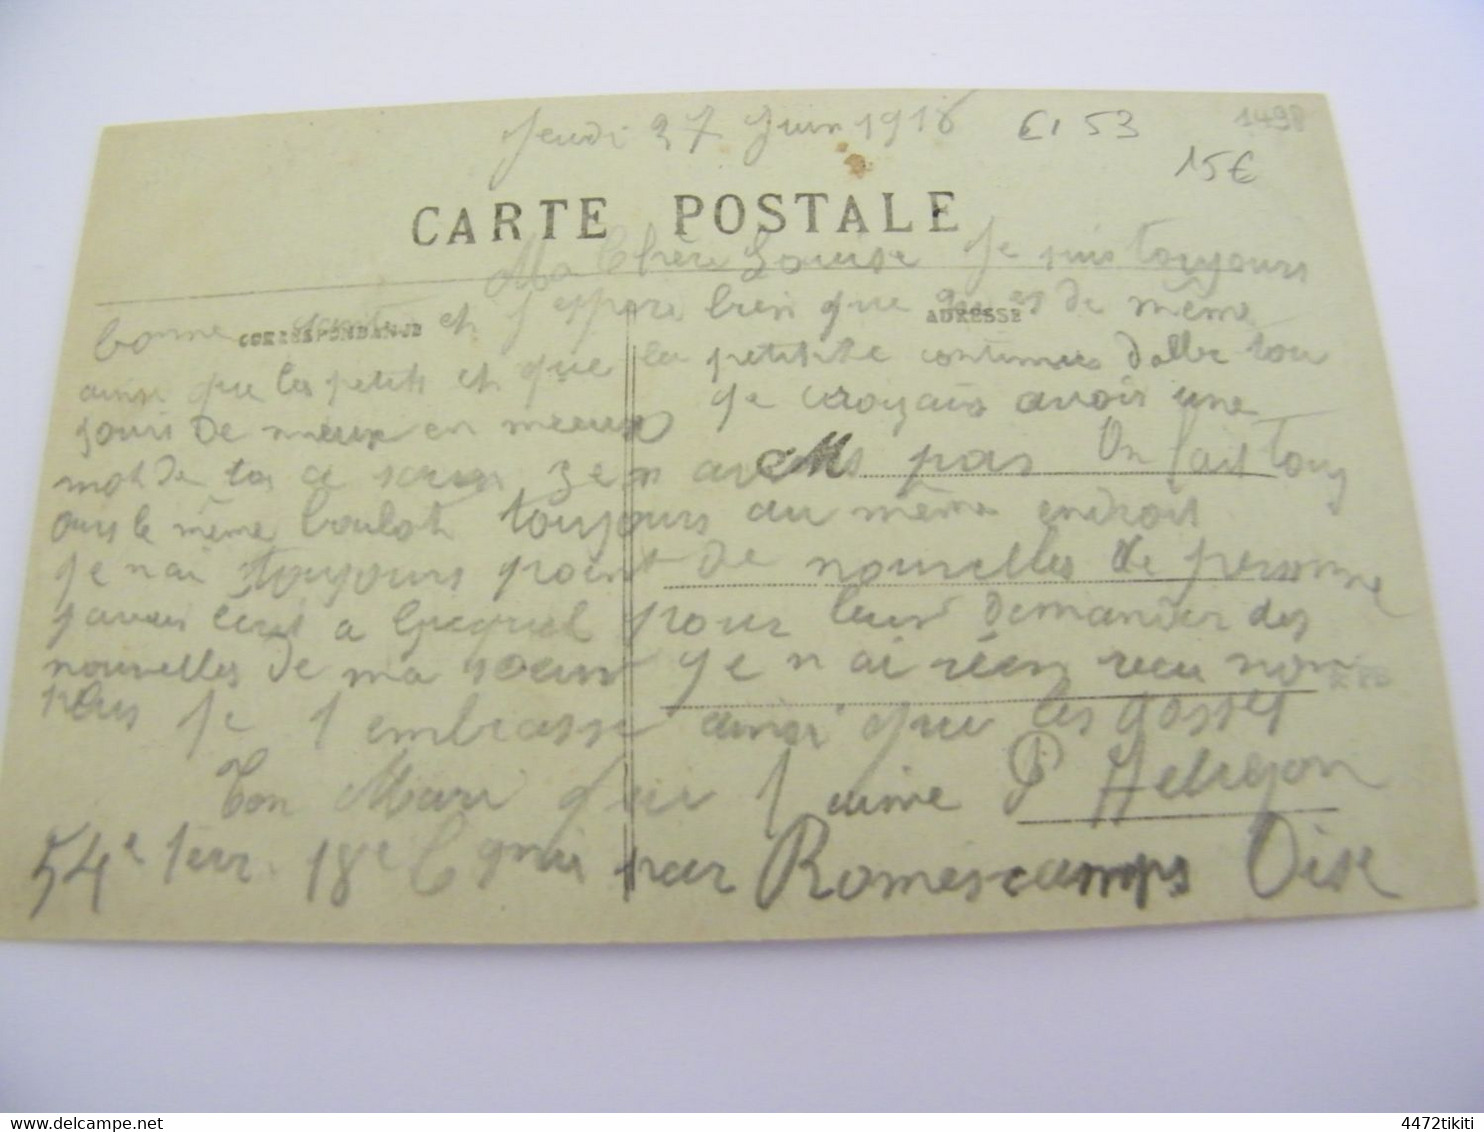 Jeudi 27 Juin 1918 £1 53 1498
15€
CARTE POSTALE
Ma Chère Louise Je suis toujours
bonne et j'esppere bien que de même
CORRESPONDANCE ADRESSE
ainsi que les petits et que la petitte continues d'aller tou
jours de mieux en mieux Je croyais avoir une
mot de toi ce pas On fait touj
ours le même boulot toujours au même endroit
Je n'ai toujours point de nouvelles de personne
javais écrit a pour leur demander des
nouvelles de ma soeur Je n'ai réen recu non
plus Je t embrasse ainsi que les gosses
Ton Mari qui t aime P
54e terr. 18e Cgnie par Romescamps Oise
delcampe.net
4472tikiti